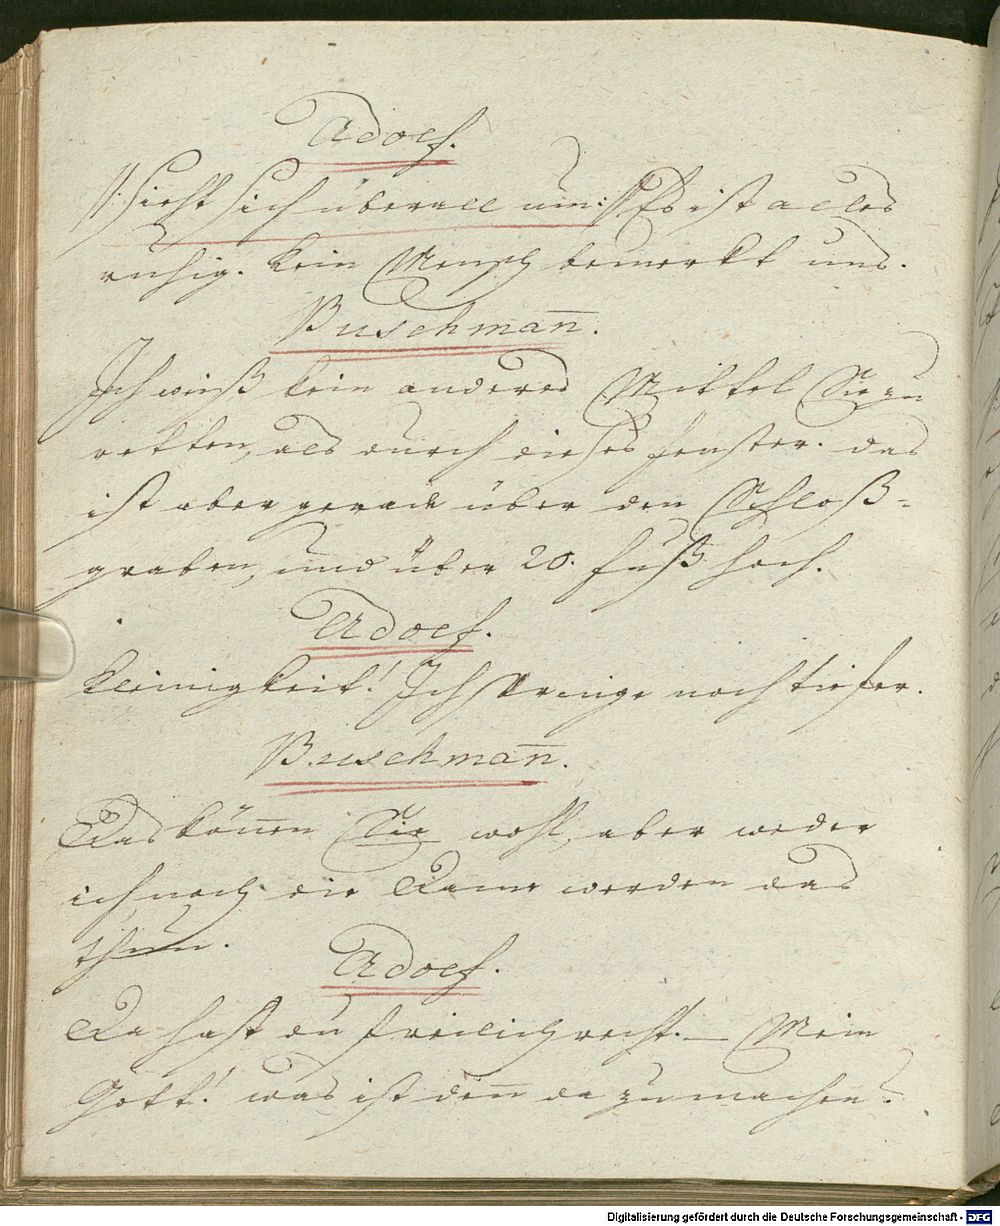 Adolf.
//: Sieht sich überall um ://  Es ist alles
ruhig. Kein Mensch bemerkt uns.
Buschman̅n̅.
Ich weiß kein anderes Mittel Sie zu
retten, als durch dieses Fenster. das
ist aber gerade über den Schloß-
graben, und über 20. Fuß hoch.
Adolf.
Kleinigkeit! Ich springe noch tiefer.
Buschman̅n̅.
Das kön̅en Sie wohl, aber weder
ich noch die Dame werden das
thun.
Adolf.
Da hast du freilich recht. — Mein
Gott! was ist den̅ da zu machen?
Digitalisierung gefördert durch die Deutsche Forschungsgemeinschaft - DFG